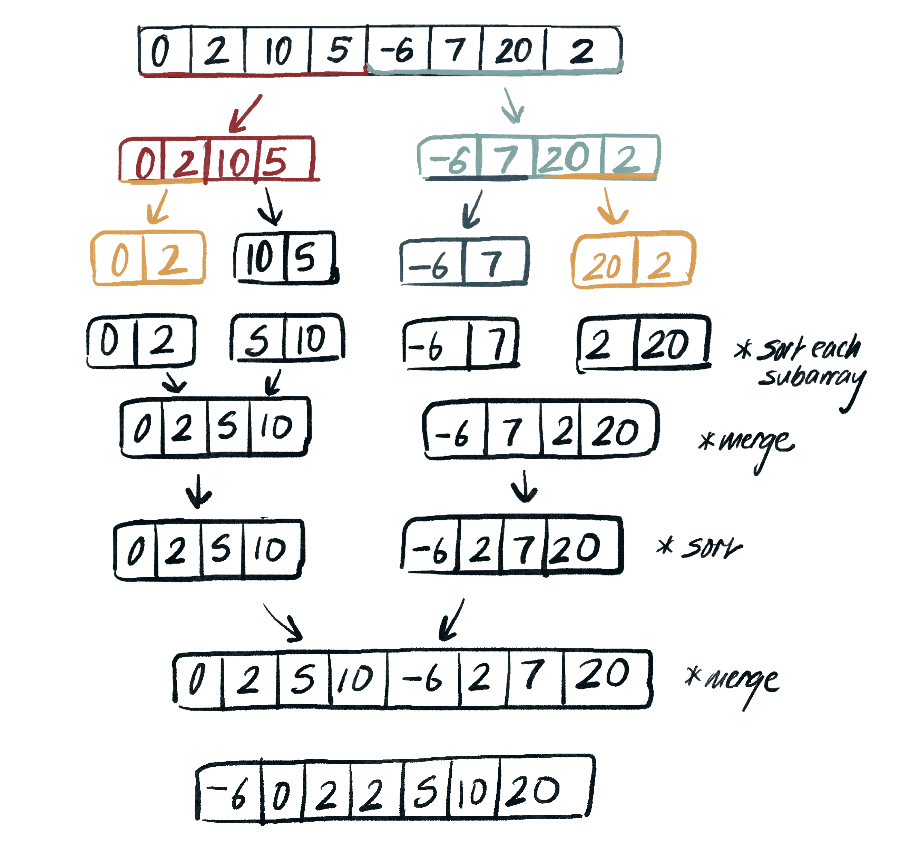 0 2 10 5 -6 7 20 2
0 2 10 5 -6 7 20 2
0 2 10 5 -6 7 20 2
0 2 5 10 -6 7 2 20 * sort each
subarray
0 2 5 10 -6 7 2 20 * merge
0 2 5 10 -6 2 7 20 * sort
0 2 5 10 -6 2 7 20 * merge
-6 0 2 2 5 10 20